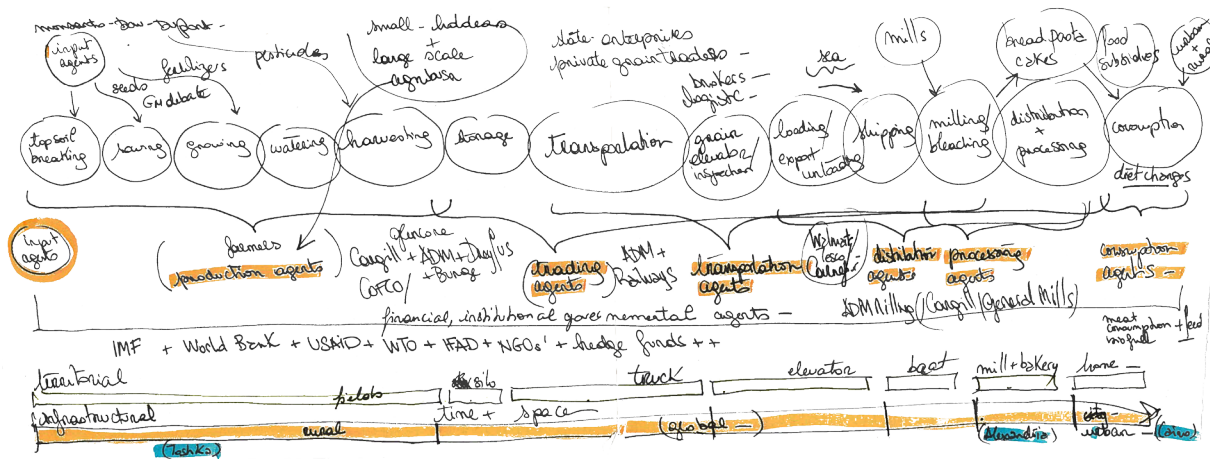 monsanto - Dow - Dupont -
input agents
seeds
fertilizers
GM debate
pesticides
small-holders
+
large scale
agribusi
state enterprises
private grain traders
brokers -
logistic -
sea
mills
bread pasta
cakes
food
subsidies
urban
+
rural
topsoil
breaking
sowing
growing
watering
harvesting
storage
transportation
grain
elevator/
inspection
loading/
export
unloading
shipping
milling/
bleaching
distribution
+
processing
consumption
diet changes
input
agents
farmers
(production agents)
glencore
Cargill + ADM + Dreyfus
+ Bunge
COFCO/
trading
agents
ADM +
Railways
transportation
agents
Walmart/
Tesco
distribution
agents
processing
agents
consumption
agents -
ADM Milling/Cargill/General Mills)
financial, institutional governmental agents -
meat
consumption + feed
biofuel
IMF + World Bank + USAID + WTO + IFAD + NGOs' + hedge funds ++
territorial
fields
silo
truck
elevator
boat
mill + bakery
home -
infrastructural
time + space
rural
(global -)
city -
urban -
(Toshka)
(Alexandria)
(Cairo)